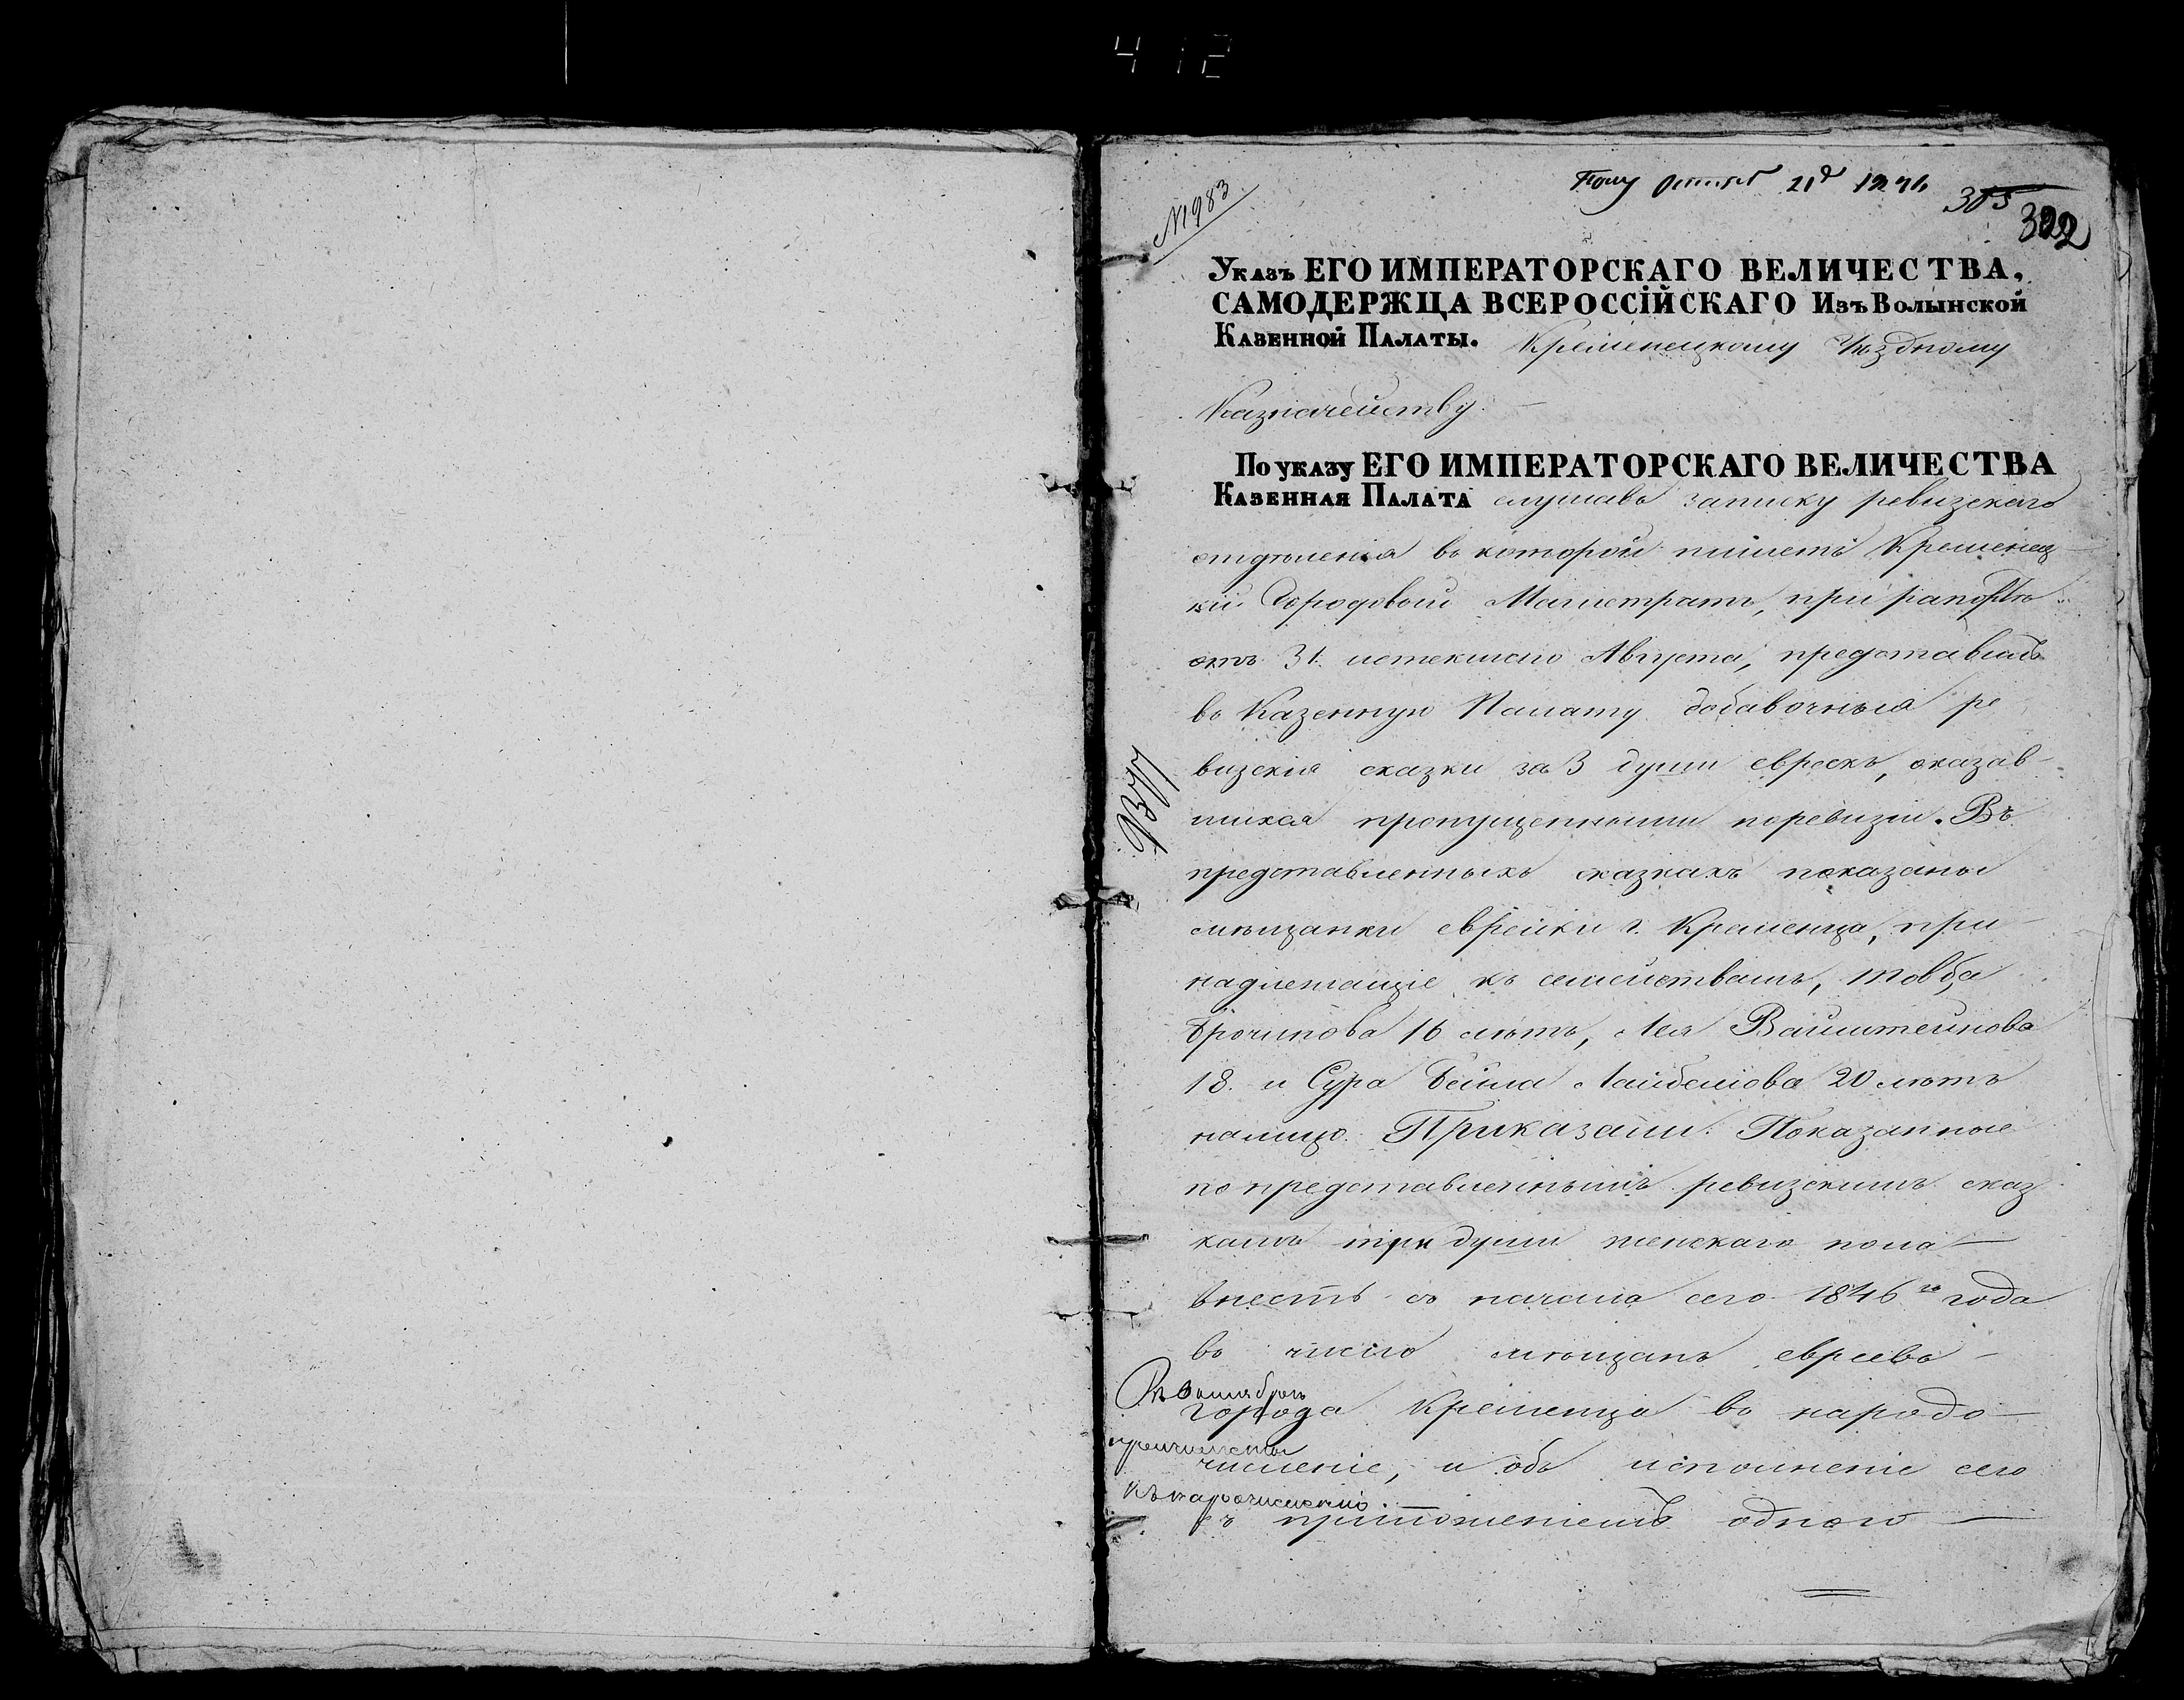 412
№1983
Полу Октяб 21д 1846
385
392
Указъ ЕГО ИМПЕРАТОРСКАГО ВЕЛИЧЕСТВА,
САМОДЕРЖЦА ВСЕРОССІЙСКАГО Изъ Волынской
Казенной Палаты. Кременецкому Уѣздному
Казначейству.
По указу ЕГО ИМПЕРАТОРСКАГО ВЕЛИЧЕСТВА
Казенная Палата слушавъ записку ревизскаго
отдѣленія въ которой пишетъ Кременец
кій Городовый Магистратъ, при рапортѣ
отъ 31. истекшаго Августа, представилъ
въ Казенную Палату добавочныя ре
визскія сказки за 3 души евреекъ, оказав
шихся пропущенными поревизіи. Въ
представленныхъ сказкахъ показаны
мѣщанки еврейки г. Кременца, при
надлежащіе къ семействамъ, Товба
16 лѣтъ, Лея Вайнштейнова
18. и Сура Бейла 20 лѣтъ
налицо. Приказали: Показанные
по представленнымъ ревизскимъ сказ
камъ три души женскаго пола
внесть съ начала сего 1846го года
въ число мѣщанъ евреевъ
города Кременца въ народо
численіе, и объ исполненіе сего
съ приложеніемъ одного